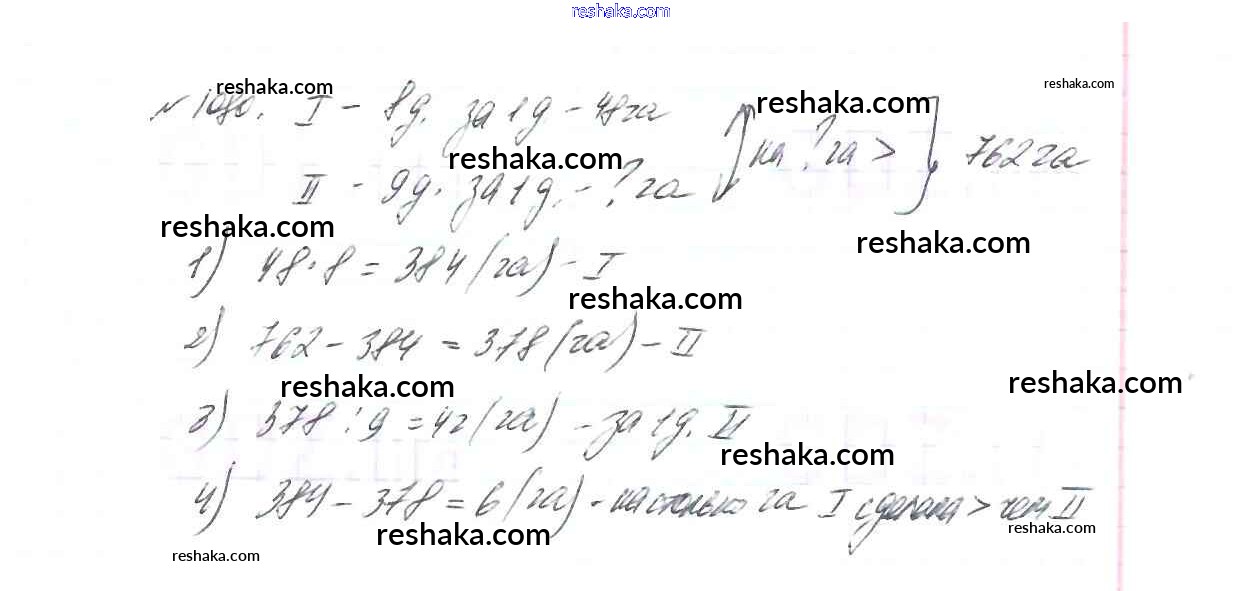 reshaka.com
reshaka.com reshaka.com
№1080. I - 8д. за 1д - 48га reshaka.com на ? га > 762га
reshaka.com
II - 9д. за 1д. - ? га
reshaka.com reshaka.com
1) 48·8 = 384 (га) - I
reshaka.com
2) 762 - 384 = 378 (га) - II
reshaka.com reshaka.com
3) 378 : 9 = 42 (га) - за 1д. II
reshaka.com
4) 384 - 378 = 6 (га) - на столько га I сделала > чем II
reshaka.com reshaka.com
reshaka.com